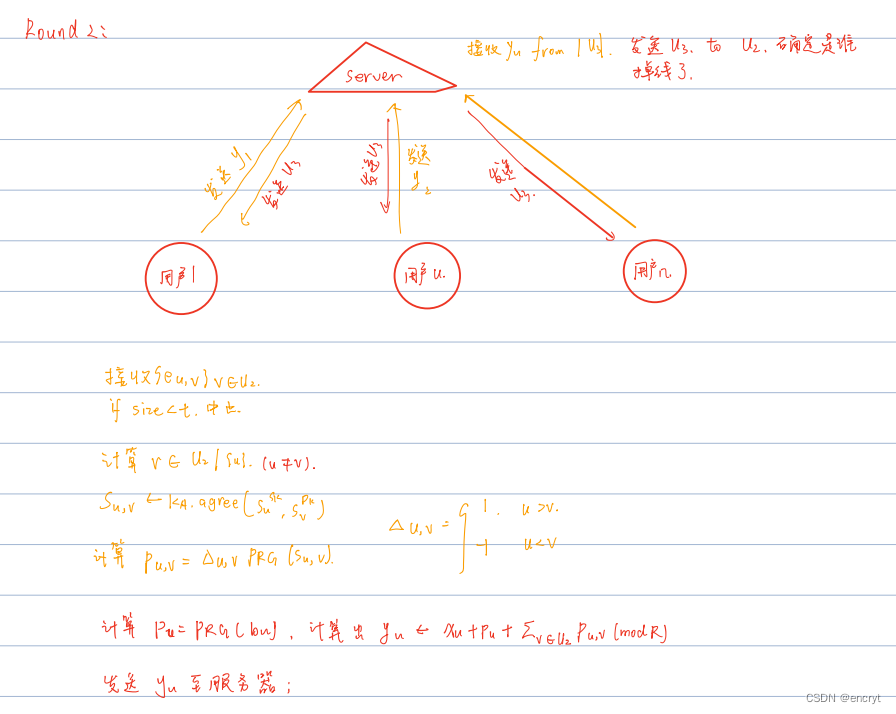 Round 2:
接收 yu from |U3|. 发送 U3. to U2. 确定是谁
掉线了.
server
发送 y1
发送 U3
发送 U3
发送
y2
发送
U3.
用户1
用户u.
用户n.
接收{eu,v}v∈U2.
if size<t. 中止.
计算 v∈U2/{u}. (u≠v).
Su,v ← KA.agree(Su^SK, Sv^PK)
Δu,v = { 1. u>v.
-1 u<v
计算 Pu,v = Δu,v PRG (Su,v).
计算 Pu=PRG(bu), 计算出 yu ← xu+Pu+∑v∈U2 Pu,v (mod R)
发送 yu 至服务器;
CSDN @encryt